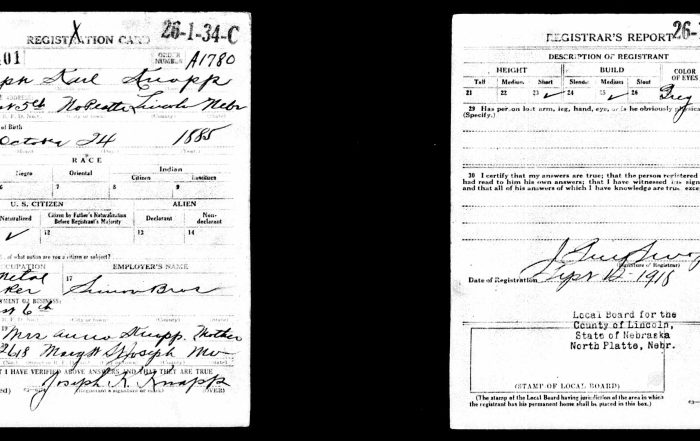 REGISTRATION CARD 26-1-34-C
01 ORDER NUMBER A1780
ph Karl Knapp
5th No Platte, Lincoln Nebr
of Birth
October 24 1885
RACE
Negro Oriental Indian
Citizen Noncitizen
6 7 8 9
U. S. CITIZEN ALIEN
Naturalized Citizen by Father's Naturalization Before Registrant's Majority Declarant Non-declarant
✓ 12 13 14
of what nation are you a citizen or subject?
CUPATION EMPLOYER'S NAME
Metal
ker 17 Simon Bros
6th
Mrs Anna Knapp Mother
618 Mary St Joseph Mo
I HAVE VERIFIED ABOVE ANSWERS AND THAT THEY ARE TRUE
Joseph K. Knapp
(OVER)
REGISTRAR'S REPORT 26-
DESCRIPTION OF REGISTRANT
HEIGHT BUILD COLOR OF EYES
Tall Medium Short Slender Medium Stout
21 22 23 ✓ 24 25 ✓ 26 Grey
29 Has person lost arm, leg, hand, eye, or is he obviously physica
(Specify.)
30 I certify that my answers are true; that the person registered
had read to him his own answers; that I have witnessed his sign
and that all of his answers of which I have knowledge are true, exce
(Signature of Registrar)
Date of Registration Sept 12 1918
Local Board for the
County of Lincoln,
State of Nebraska
North Platte, Nebr.
(STAMP OF LOCAL BOARD)
(The stamp of the Local Board having jurisdiction of the area in which
the registrant has his permanent home shall be placed in this box.)